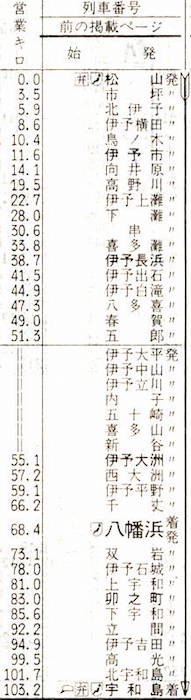 営業キロ 列車番号
前の掲載ページ
始 発
0.0 弁 松山 発
3.5 市坪 〃
5.9 北伊予 〃
8.6 伊予横田 〃
10.4 鳥ノ木 〃
11.6 伊予市 〃
14.1 向井原 〃
19.5 高野川 〃
22.7 伊予上灘 〃
28.0 下灘 〃
30.6 串 〃
33.8 喜多灘 〃
38.7 伊予長浜 〃
41.5 伊予出石 〃
44.9 伊予白滝 〃
47.3 八多喜 〃
49.0 春賀 〃
51.3 五郎 〃
伊予大平 発
伊予中山 〃
伊予立川 〃
内子 〃
五十崎 〃
喜多山 〃
新谷 〃
55.1 伊予大洲 〃
57.2 西大洲 〃
59.1 伊予平野 〃
66.2 千丈 〃
68.4 八幡浜 着発
73.1 双岩 〃
78.0 伊予石城 〃
81.0 上宇和 〃
83.0 卯之町 〃
85.6 下宇和 〃
92.2 立間 〃
94.9 伊予吉田 〃
99.5 高光 〃
101.7 北宇和島 〃
103.2 弁 宇和島 着